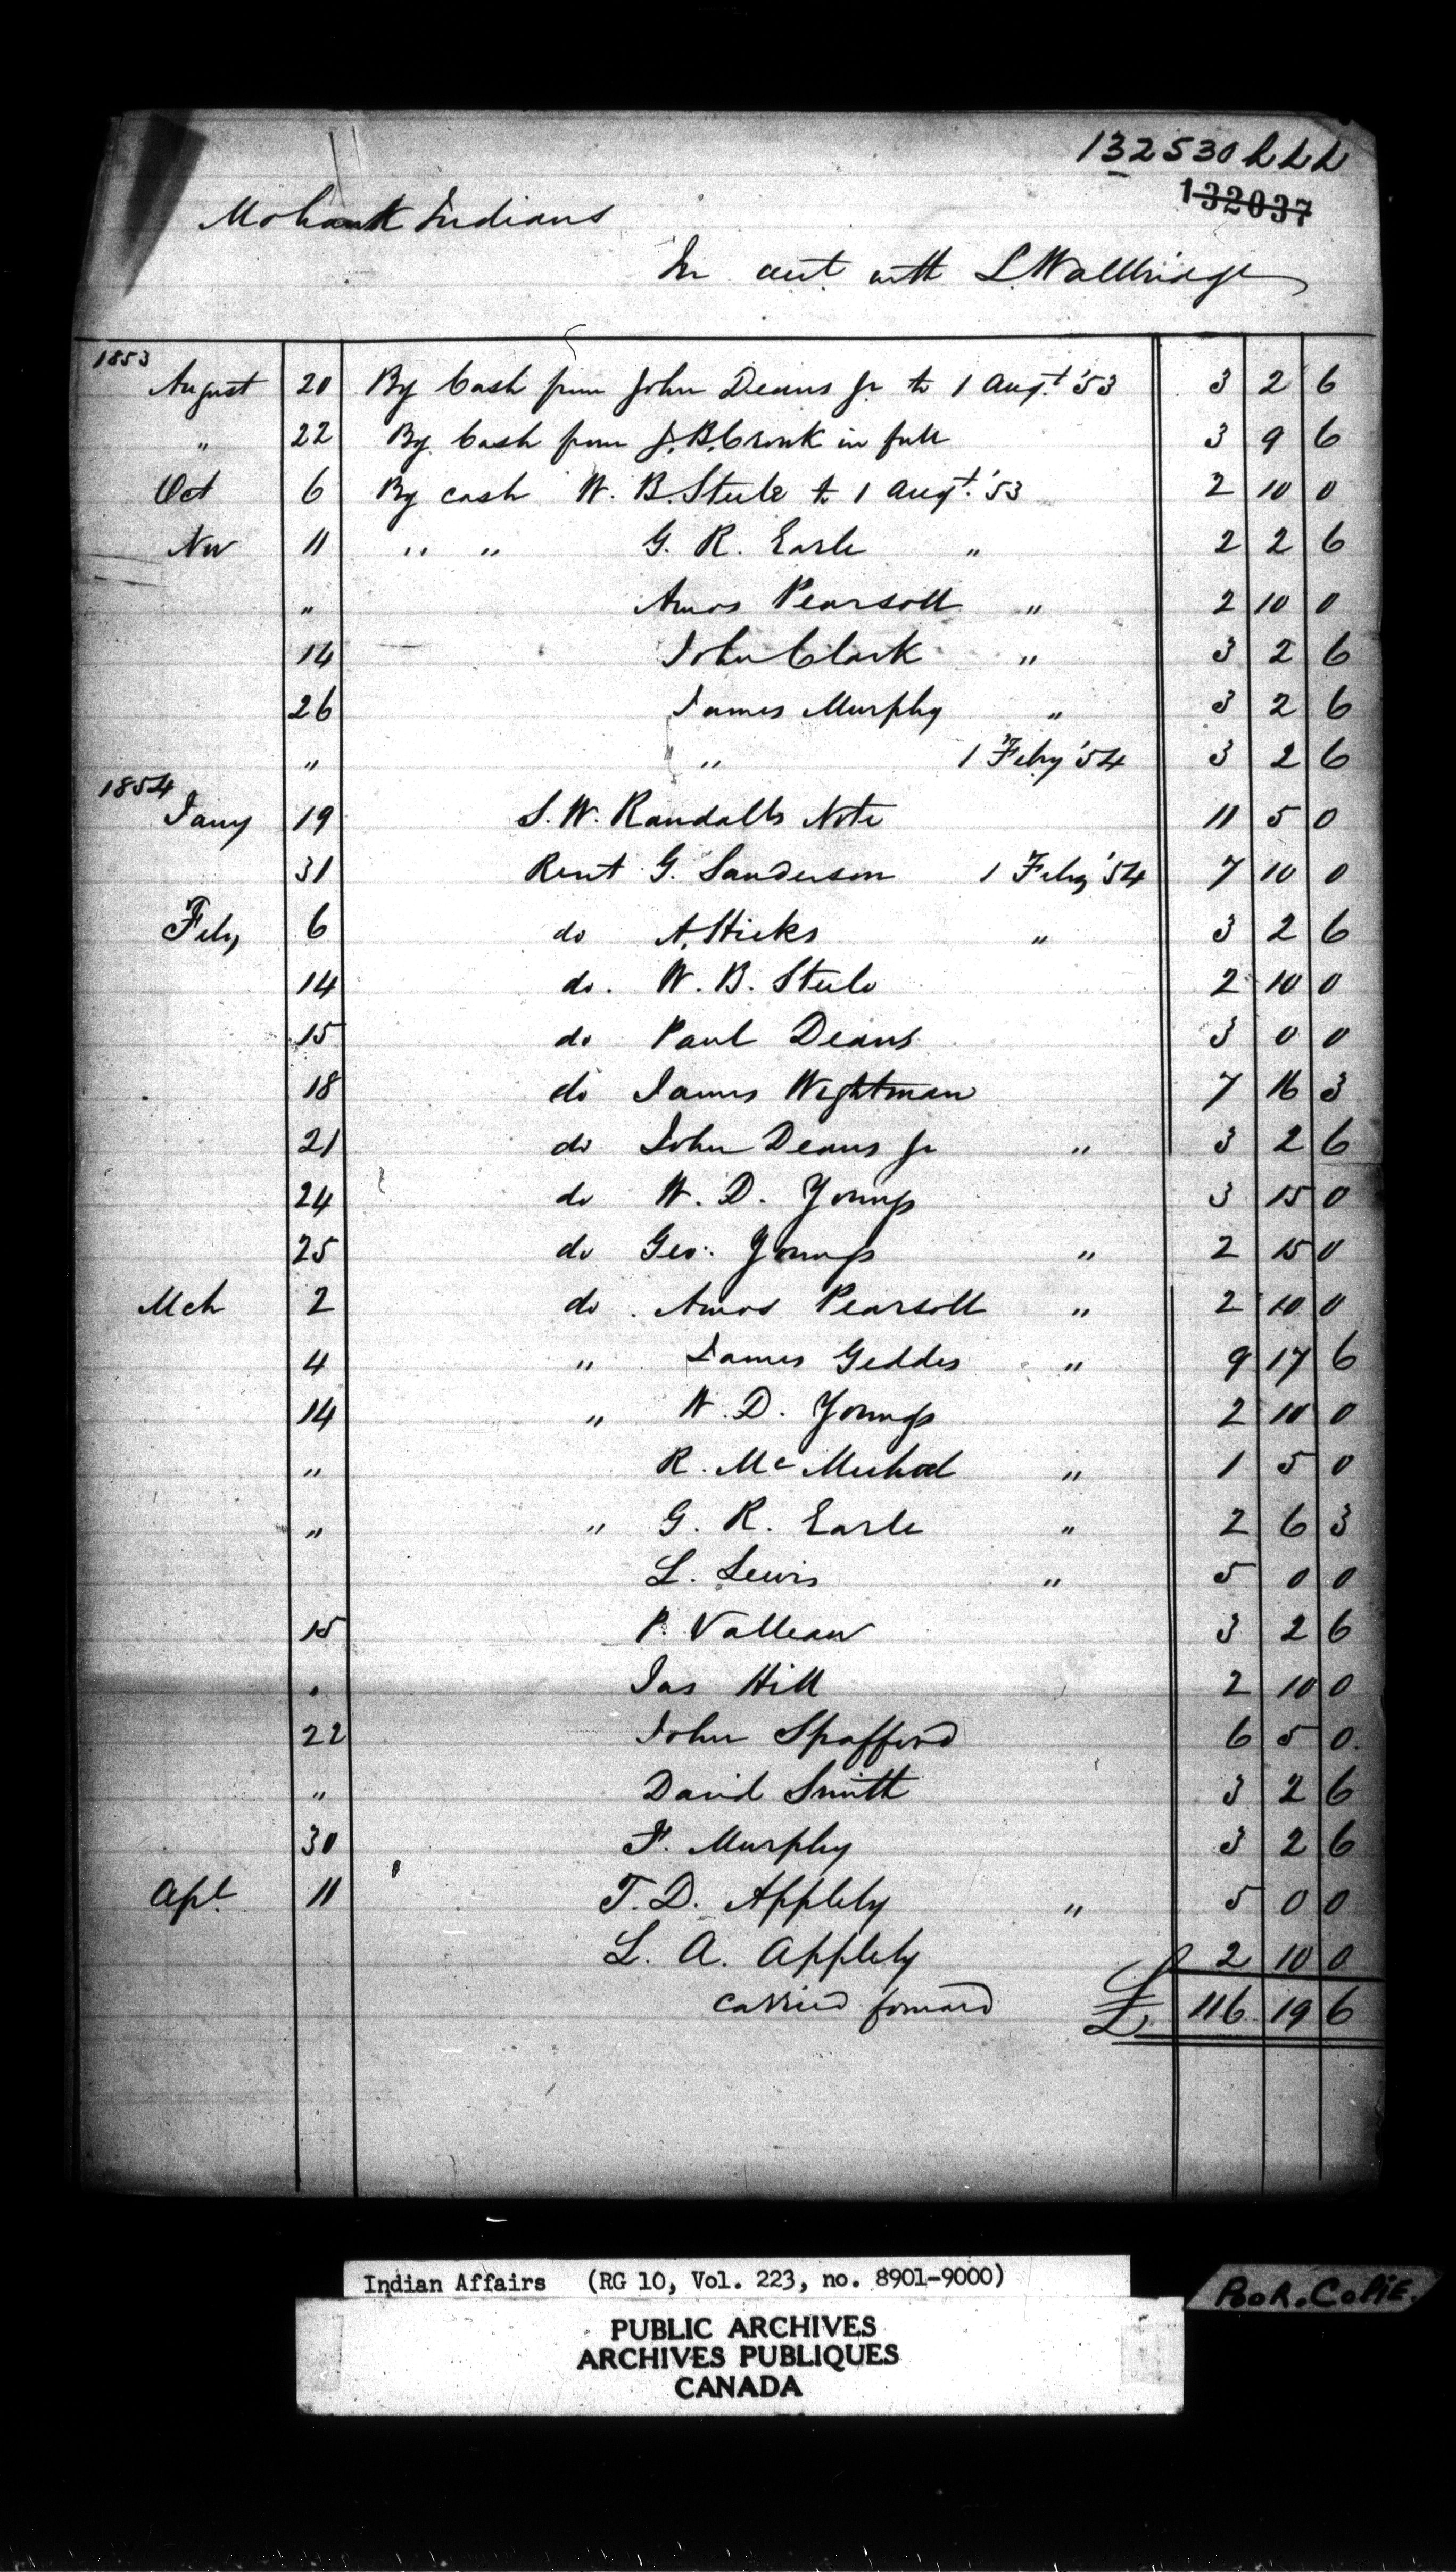 132530 LLL
132037
Mohawk Indians
In acct with L. Wallbridge
1853
August 20 By Cash from John Deans Jr to 1 Augt '53 3 2 6
" 22 By Cash from J. B. Cronk in full 3 9 6
Oct 6 By cash W. B. Steele to 1 Augt '53 2 10 0
Nov 11 " " G. R. Earle " 2 2 6
" Amos Pearsoll " 2 10 0
14 John Clark " 3 2 6
26 James Murphy " 3 2 6
" " 1 Feby '54 3 2 6
1854
Jany 19 S. W. Randalls Note 11 5 0
31 Rent G. Sanderson 1 Feby '54 7 10 0
Feby 6 do A. Hicks " 3 2 6
14 do. W. B. Steele 2 10 0
15 do Paul Deans 3 0 0
18 do James Wightman 7 16 3
21 do John Deans Jr " 3 2 6
24 do W. D. Youngs 3 15 0
25 do Geo: Youngs " 2 15 0
Mch 2 do Amos Pearsoll " 2 10 0
4 " James Geddes " 9 17 6
14 " W. D. Youngs 2 10 0
" R. Mc Michael " 1 5 0
" " G. R. Earle " 2 6 3
L. Lewis " 5 0 0
15 P. Valleau 3 2 6
" Jas Hill 2 10 0
22 John Spafford 6 5 0.
" David Smith 3 2 6
30 F. Murphy 3 2 6
Apl. 11 T. D. Appleby " 5 0 0
L. A. Appleby 2 10 0
carried forward £ 116 19 6
Indian Affairs (RG 10, Vol. 223, no. 8901-9000)
PUBLIC ARCHIVES
ARCHIVES PUBLIQUES
CANADA
PooR. CoPiE.